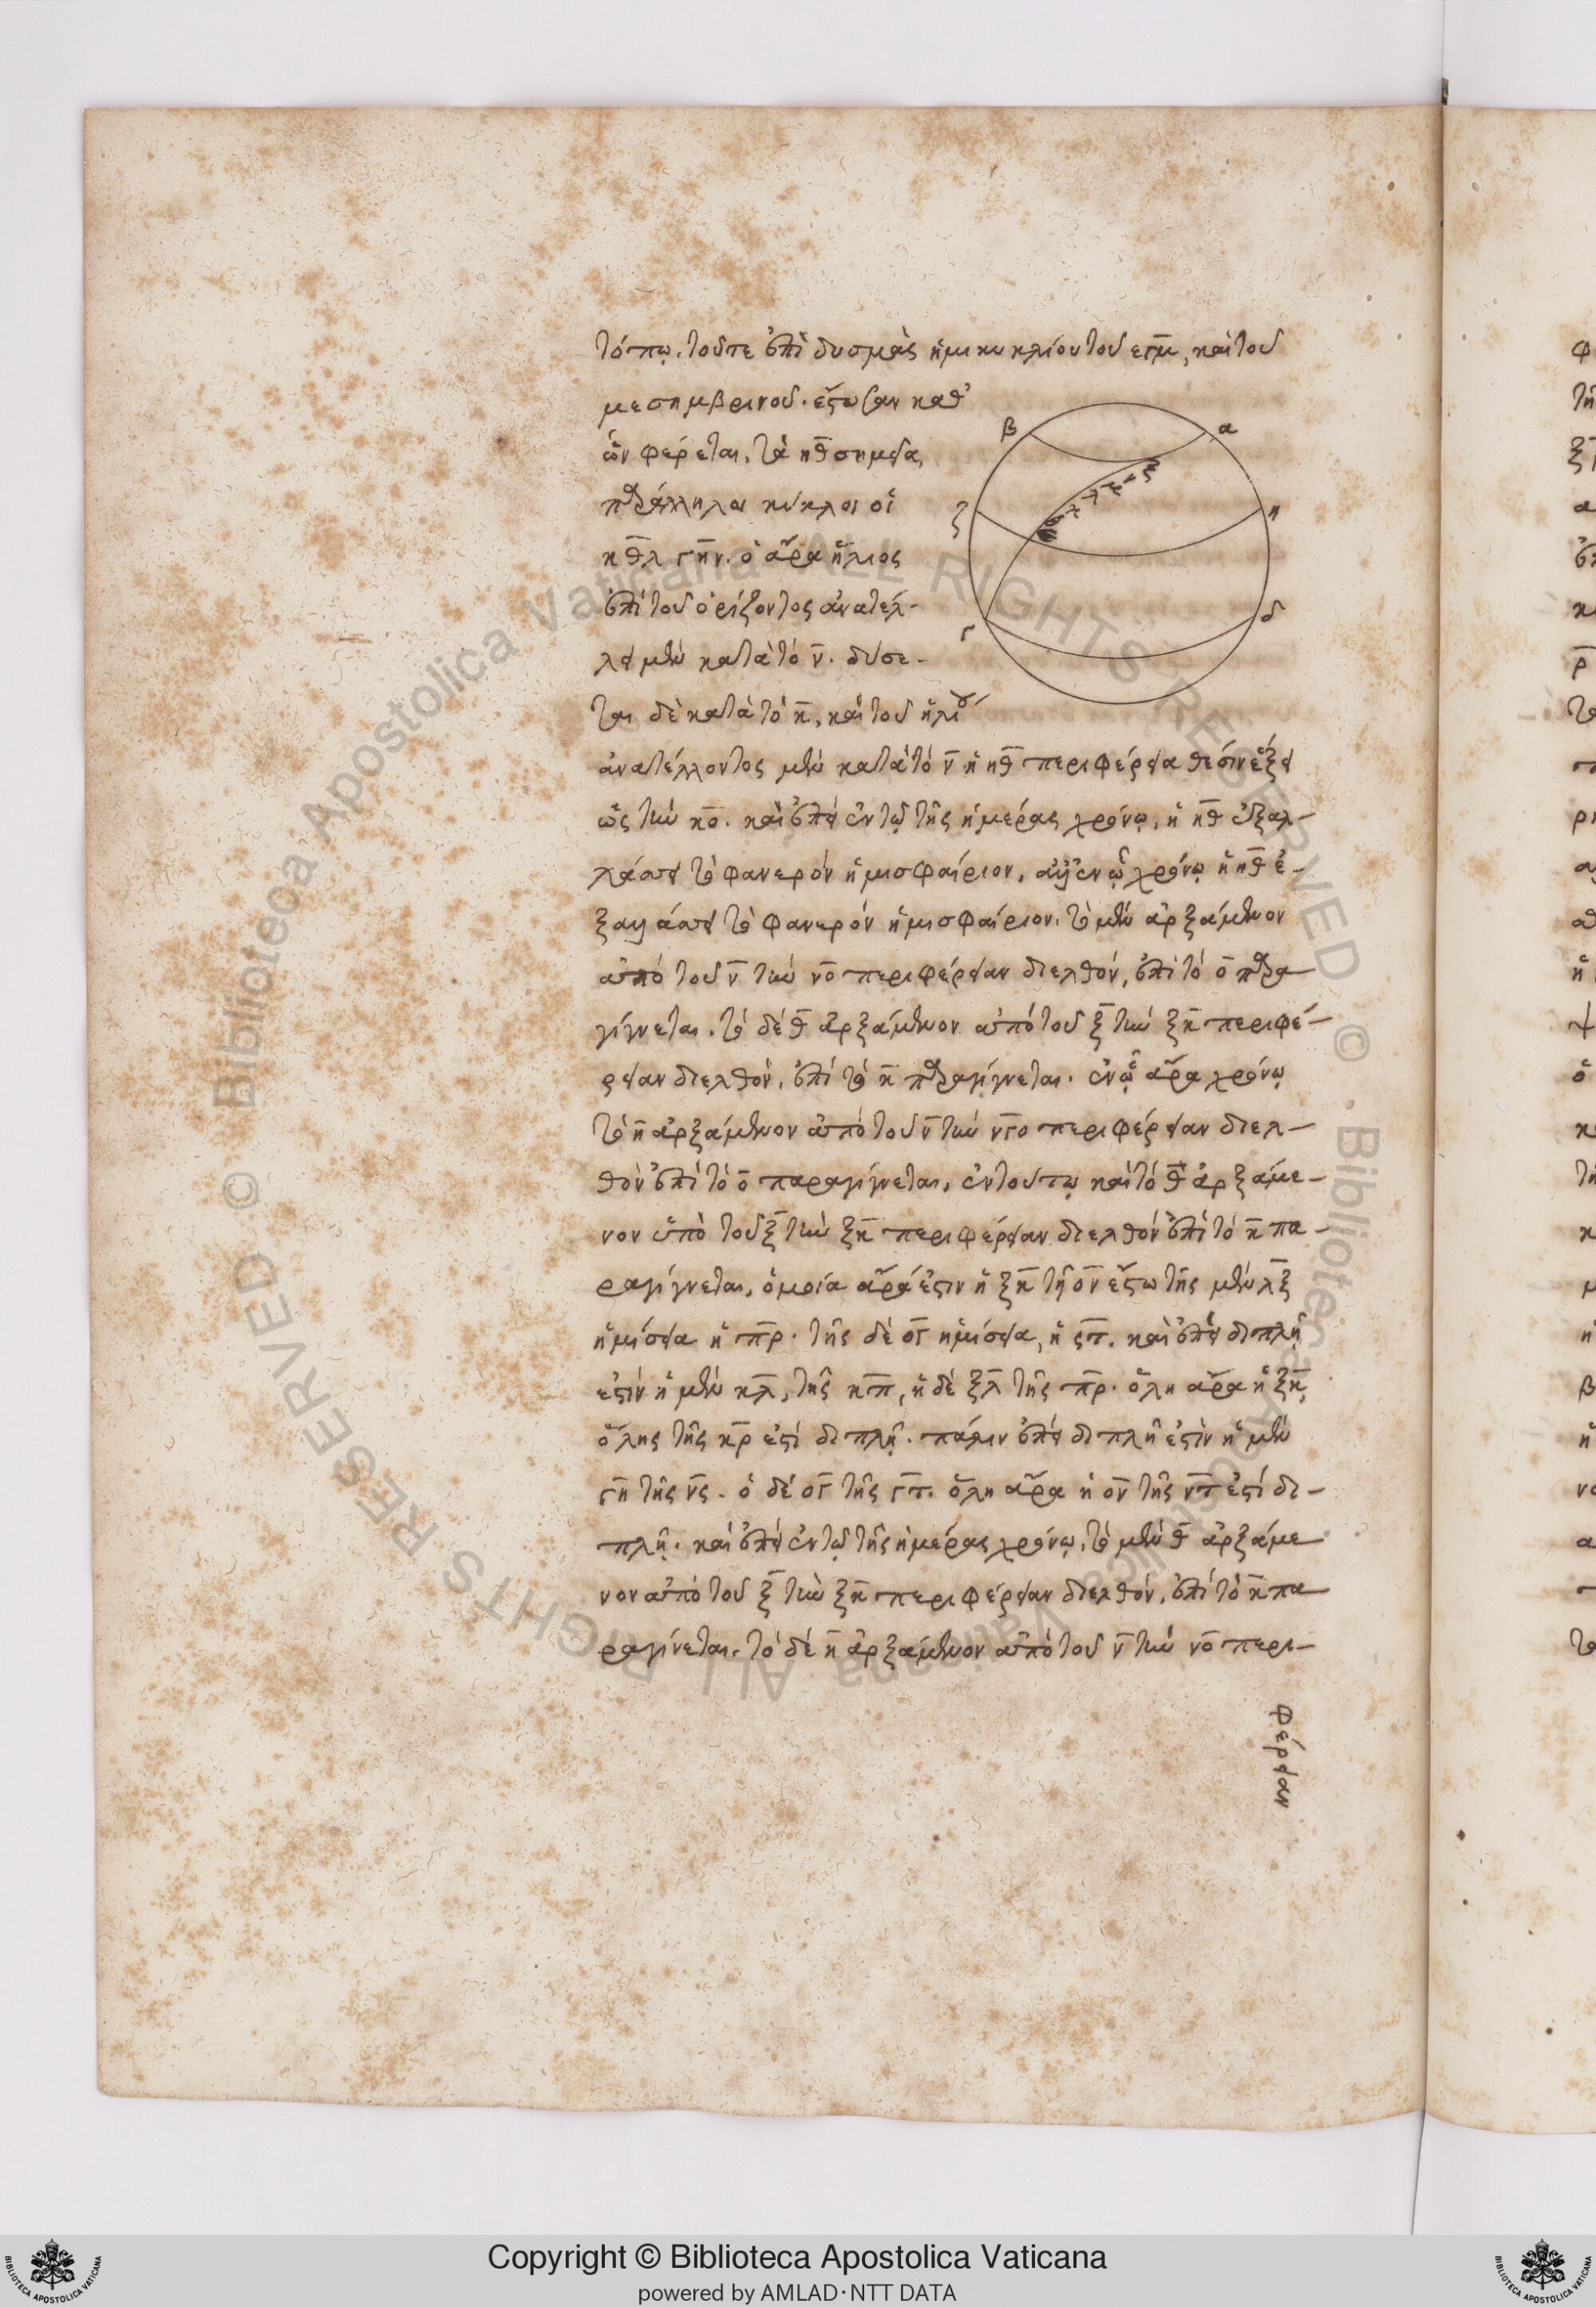 τόπῳ. τοῦτε ἐπὶ δυσμὰς ἡμικυκλίου τοῦ εγμ̅, καὶ τοῦ
μεσημβρινοῦ. ἔστωσαν καθ᾽
ὧν φέρεται. τὰ ηθ̅ σημεῖα,
παράλληλοι κύκλοι οἱ
κθ̅λ γη̅ν. ὁ ἄρα ἥλιος
ἐπὶ τοῦ ὁρίζοντος ἀνατέλ-
λει μὲν κατὰ τὸ ν̅. δύσε-
ται δὲ κατὰ τὸ κ̅, καὶ τοῦ ἡλίου
ἀνατέλλοντος μὲν κατὰ τὸ ν̅ ἡ ηθ̅ περιφέρεια θέσιν ἕξει
ὡς τὴν κο̅. καὶ ἐπεὶ ἐν τῷ τῆς ἡμέρας χρόνῳ, ἡ ηθ̅ ἐξαλ-
λάσσει τὸ φανερὸν ἡμισφαίριον. ἀλλ᾽ ἐν ᾧ χρόνῳ ἡ ηθ̅ ἐ-
ξαλλάσσει τὸ φανερὸν ἡμισφαίριον. τὸ μὲν ἀρξάμενον
ἀπὸ τοῦ ν̅ τὴν νο̅ περιφέρειαν διελθόν, ἐπὶ τὸ ο̅ παρα-
γίγνεται. τὸ δὲ θ̅ ἀρξάμενον ἀπὸ τοῦ ξ̅ τὴν ξκ̅ περιφέ-
ρειαν διελθόν, ἐπὶ τὸ κ̅ παραγίγνεται. ἐν ᾧ ἄρα χρόνῳ
τὸ η̅ ἀρξάμενον ἀπὸ τοῦ ν̅ τὴν νγ̅ο περιφέρειαν διελ-
θὸν ἐπὶ τὸ ο̅ παραγίγνεται, ἐν τούτῳ καὶ τὸ θ̅ ἀρξάμε-
νον ἀπὸ τοῦ ξ̅ τὴν ξκ̅ περιφέρειαν διελθὸν ἐπὶ τὸ κ̅ πα-
ραγίγνεται, ὁμοία ἄρα ἐστιν ἡ ξκ̅ τῇ ον̅ ἔστω τῆς μὲν λξ̅
ἡμίσεια ἡ πρ̅. τῆς δὲ ογ̅ ἡμίσεια, ἡ ςπ̅. καὶ ἐπεὶ διπλῆ
ἐστὶν ἡ μὲν κλ̅, τῆς κπ̅, ἡ δὲ ξλ̅ τῆς πρ̅. ὅλη ἄρα ἡ ξκ̅,
ὅλης τῆς κρ̅ ἐστὶ διπλῆ. πάλιν ἐπεὶ διπλῆ ἐστὶν ἡ μὲν
γη̅ τῆς νς̅. ὁ δὲ ογ̅ τῆς γπ̅. ὅλη ἄρα ἡ ον̅ τῆς νπ̅ ἐστὶ δι-
πλῆ. καὶ ἐπεὶ ἐν τῷ τῆς ἡμέρας χρόνῳ, τὸ μὲν θ̅ ἀρξάμε
νον ἀπὸ τοῦ ξ̅ τὴν ξκ̅ περιφέρειαν διελθόν, ἐπὶ τὸ κ̅ πα
ραγίνεται. τὸ δὲ η̅ ἀρξάμενον ἀπὸ τοῦ ν̅ τὴν νο̅ περι-
φέρειαν
β α
ζ η
γ δ
Copyright © Biblioteca Apostolica Vaticana
powered by AMLAD·NTT DATA